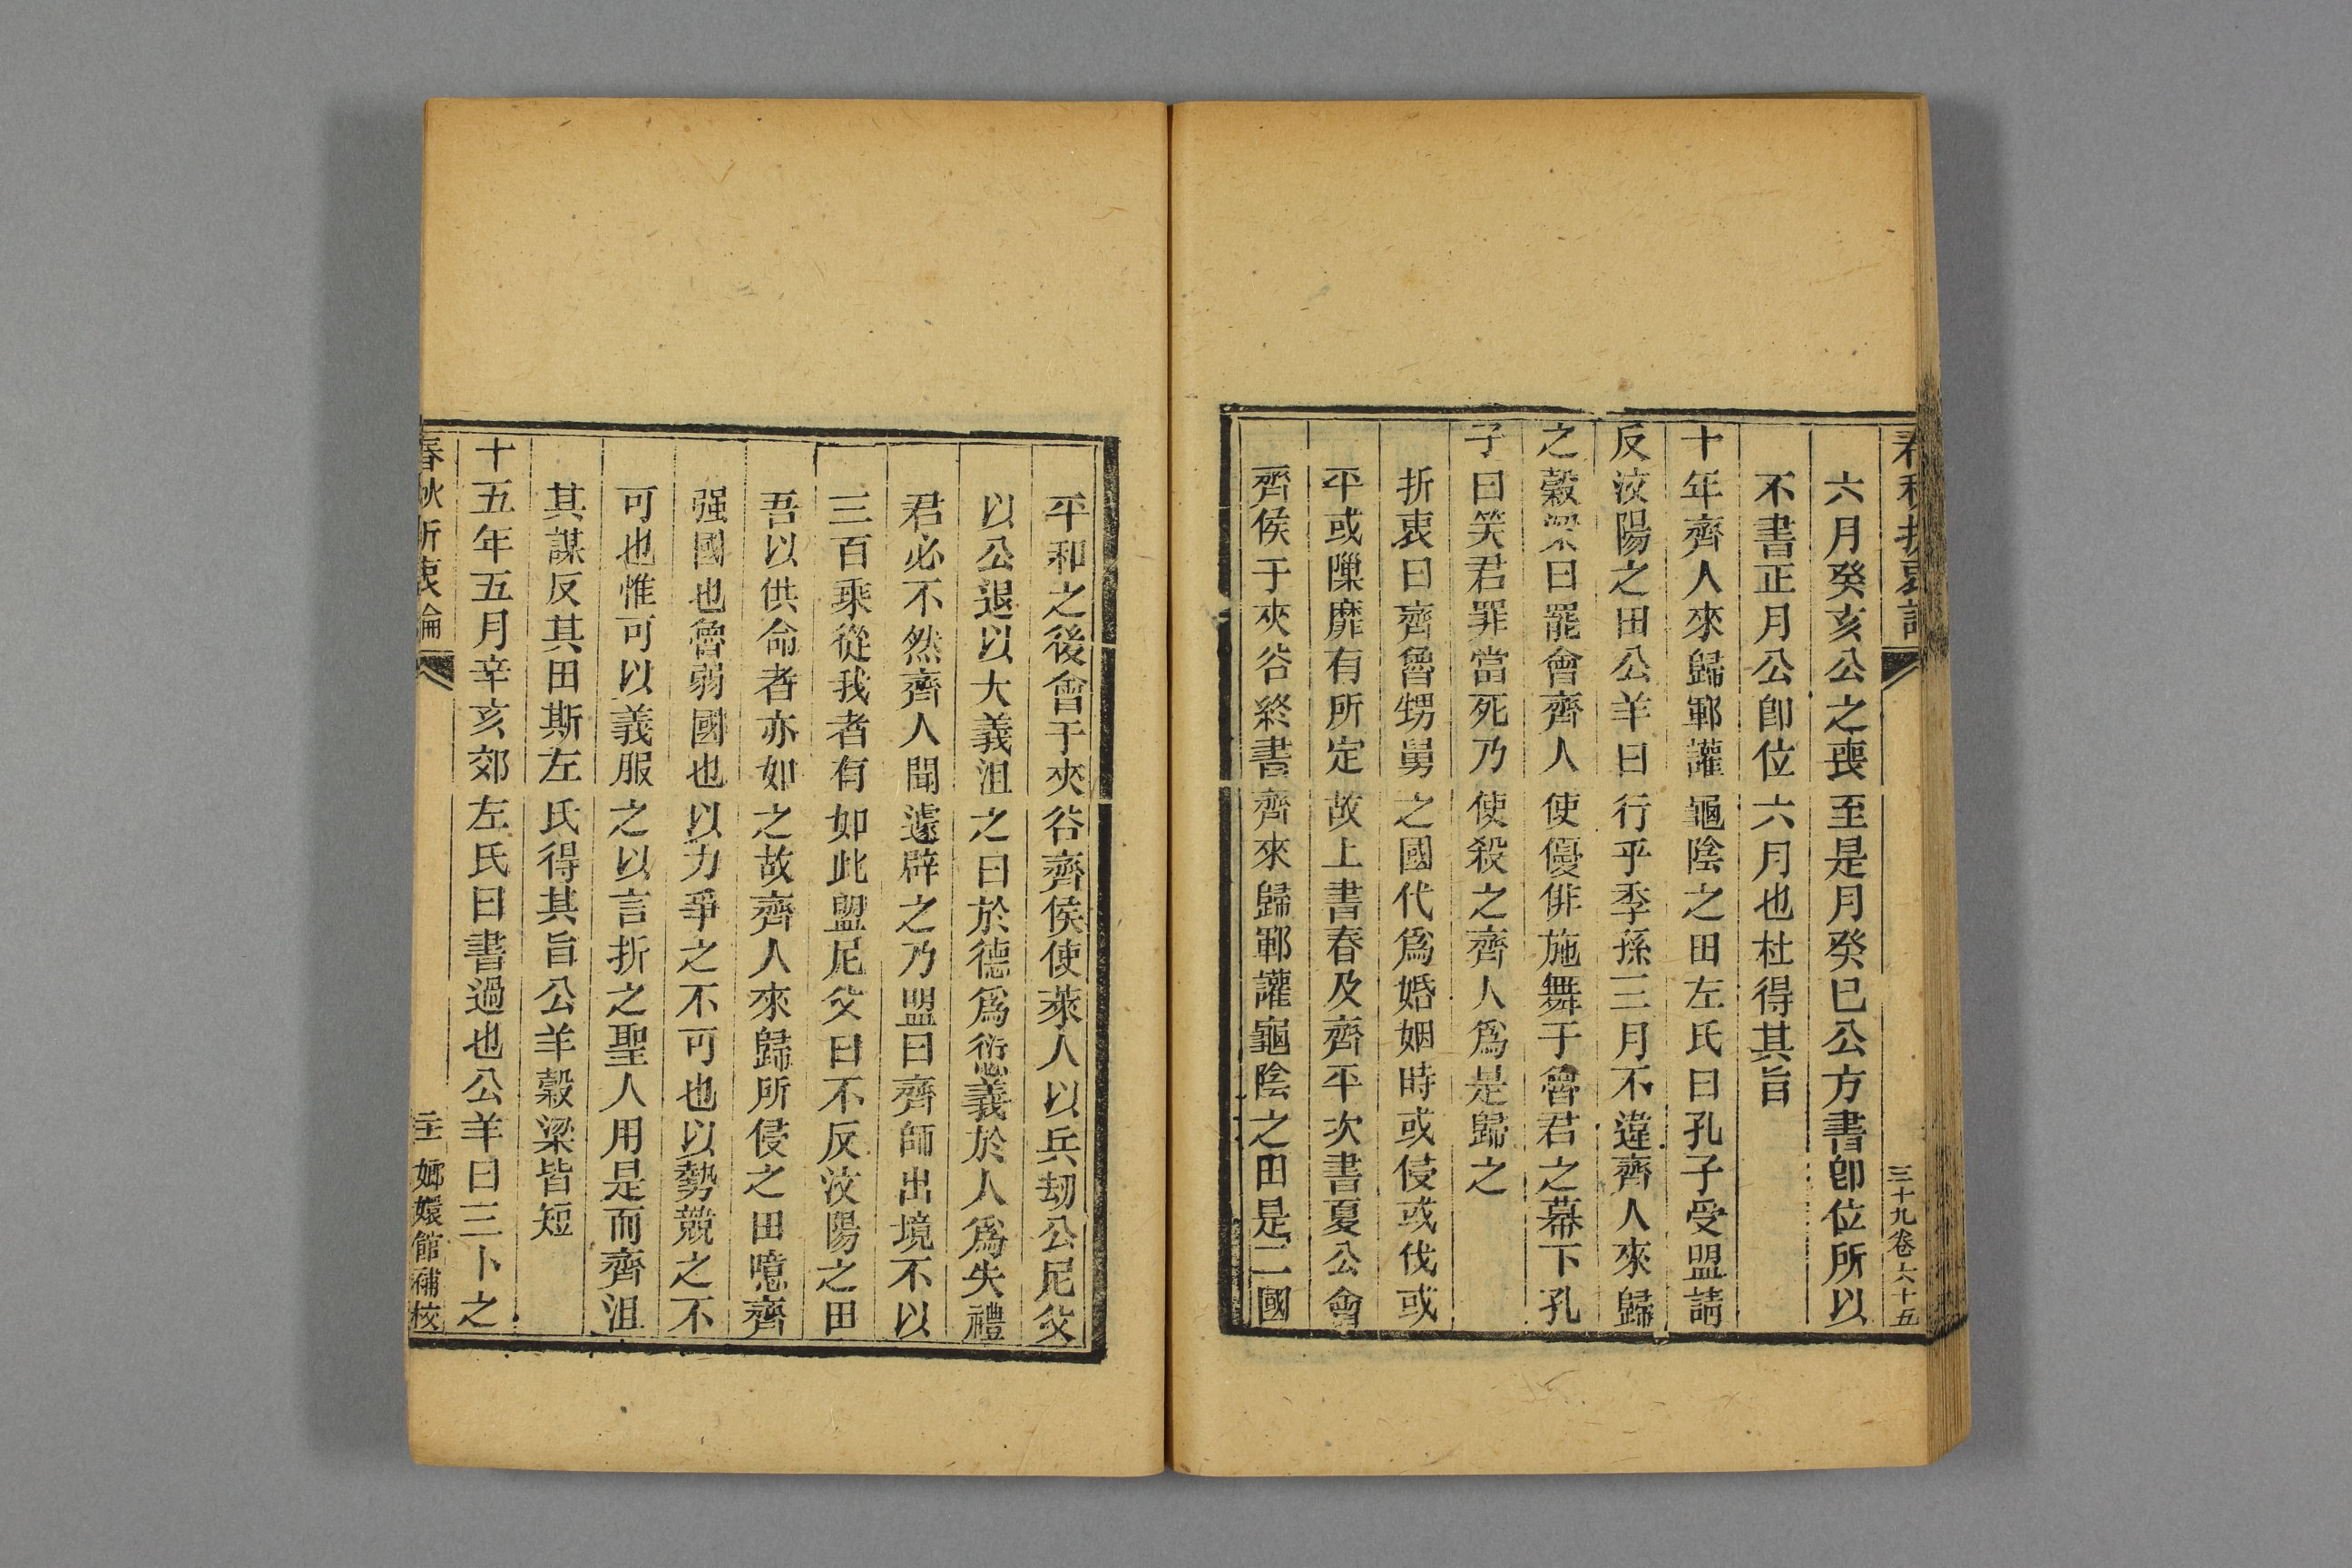 三十九卷六十五
六月癸亥公之喪至是月癸巳公方書卽位所以
不書正月公卽位六月也杜得其旨
十年齊人來歸鄆讙龜陰之田左氏曰孔子受盟請
反汶陽之田公羊曰行乎季孫三月不違齊人來歸
之穀梁曰罷會齊人使優俳施舞于魯君之幕下孔
子曰笑君罪當死乃使殺之齊人爲是歸之
折衷曰齊魯甥舅之國代爲婚姻時或侵或伐或
平或隟靡有所定故上書春及齊平次書夏公會
齊侯于夾谷終書齊來歸鄆讙龜陰之田是二國
平和之後會于夾谷齊侯使萊人以兵刧公尼父
以公退以大義沮之曰於德爲愆義於人爲失禮
君必不然齊人聞遽辟之乃盟曰齊師出境不以
三百乘從我者有如此盟尼父曰不反汶陽之田
吾以供命者亦如之故齊人來歸所侵之田噫齊
强國也魯弱國也以力爭之不可也以勢競之不
可也惟可以義服之以言折之聖人用是而齊沮
其謀反其田斯左氏得其旨公羊穀梁皆短
十五年五月辛亥郊左氏曰書過也公羊曰三卜之
春秋折衷論 嫏嬛館補校